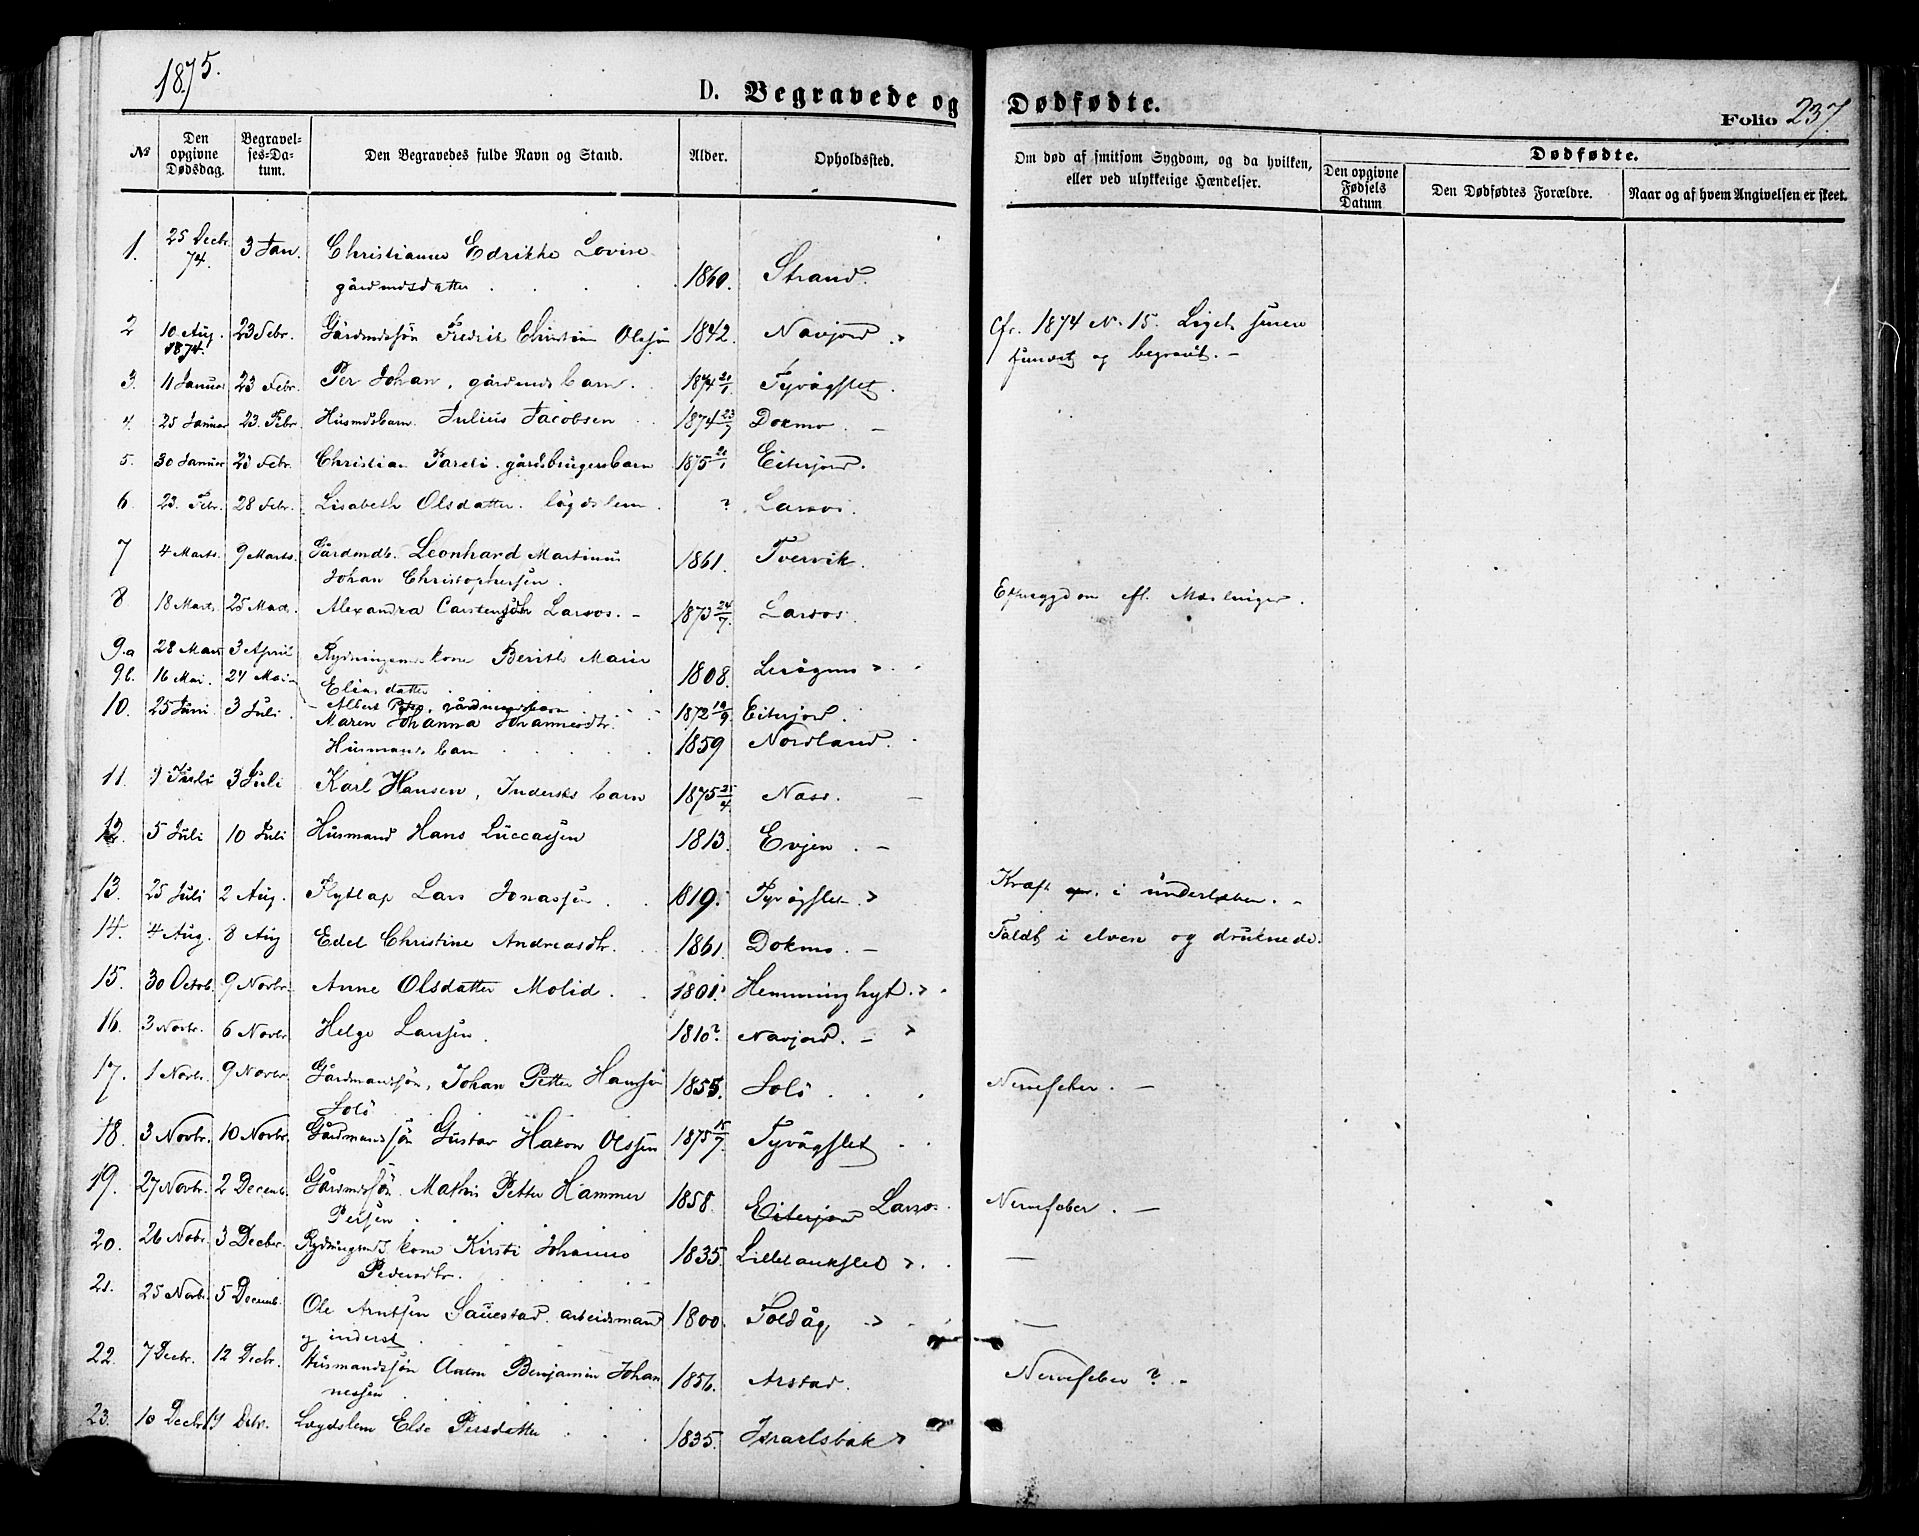 1875.
D. Begravede og Dødfødte.
Folio 237.
№ Den opgivne Dødsdag. Begravelses-Datum. Den Begravedes fulde Navn og Stand. Alder. Opholdssted. Om død af smitsom Sygdom, og da hvilken, eller ved ulykkelige Hændelser. Dødfødte. Den opgivne Fødsels Datum Den Dødfødtes Forældre. Naar og af hvem Angivelsen er skeet.
1. 25 Decbr. 74. 3 Jan. Christianne Edrikke Lovise
gårdmdsdatter 1860. Strand.
2 10 Aug. 1874. 23 Febr. Gårdmdssøn Fredrik Christian Olssøn 1842. Navjord Cfr. 1874 N. 15. Liget senere
funvet og begravet. –
3. 11 Januar 23 Febr. Per Johan, gårdmdsbarn. 1874 20/1. Tyvågslet.
4. 25 Januar 23. Febr. Husmdsbarn. Julius Jacobsen 1874 23/7 Dokmo. –
5. 30 Januar 23 Febr. Christian Pareli. gårdbrugersbarn 1875 20/1 Eiterjord.
6 23. Febr. 28 Febr. Lisabeth Olsdatter. lægdslem. ? Larsos.
7 4 Marts. 9 Marts. Gårdmdb. Leonhard Martinus
Johan Christophersen. 1861. Tvervik.
8 18 Marts 25 Marts. Alexandra Carstensdtr Larsos. – 1873 24/7. Larsos. Eftersygdom eft. Mæslinger.
9.a 28 Mars 3 April Rydningsmds kone Berith Marie
Eliasdatter 1808.
9b. 16 Mai. 24 Mai – Albert Peter, gårdmandsbarn 1872 19/9. Eiterjord.
10. 25 Juni 3 Juli. Maren Johanna Johannesdtr.
Husmands barn 1859 Nordland.
11. Juli 3 Juli Karl Hansen, Indersts barn 1875 25/4. Næss. –
12 5 Juli 10 Juli Husmand Hans Luccassen 1813. Evjen. –
13. 25 Juli 2 Aug. Flytlap Lars Jonassen 1819. Tyvågslet Kræft i underlæben. –
14. 4 Aug. 8 Aug Edel Christine Andreasdtr. 1861. Dokmo. – Faldt i elven og druknede.
15. 30 Octob. 9 Novbr. Anne Olsdatter Molid. 1801. Hemminghyt.
16. 3 Novbr. 6 Novbr Helge Larssen. 1810? Navjord. –
17. 1 Novbr. 9 Novbr. Gårdmanssøn, Johan Petter Hanssøn
Solö 1855. Solö Nervefeber. –
18. 3 Novbr. 10 Novbr. Gårdmandssøn Gustav Hakon Olssen 1875 15/7. Tyvågslet
19. 27 Novbr. 2 Decemb. Gårdmdssøn. Mathis Petter Hammer
Perssen 1858. Eiterjord Larsos. Nervefeber. –
20. 26 Nobr. 3 Decber. Rydningsmds kone Kirsti Johanna
Pedersdtr. 1835. Lilletaukslet –
21. 25 Novbr. 5 Decemb. Ole Arntsen Sauestad. arbeidsmand
og inderst. 1800. Toldåg –
22. 7 Decbr. 12 Decbr. Husmandssøn Aaron Benjamin Johan
nessen 1856. Arstad. Nervefeber? –
23. 10 Decbr 17 Decbr. Lægdslem Else Persdatter 1835. Israelsbak